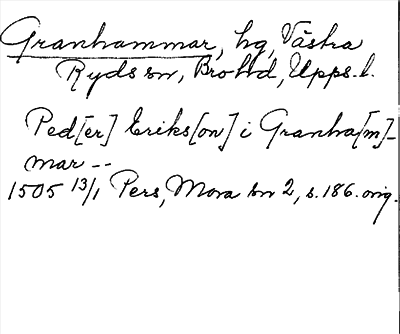 Granhammar, hg, Västra
Ryds sn, Bro hd, Upps. l.
Ped[er] Eriks[on] i Granha[m]-
mar --
1505 13/1 Pers, Mora sn 2, s. 186. orig.